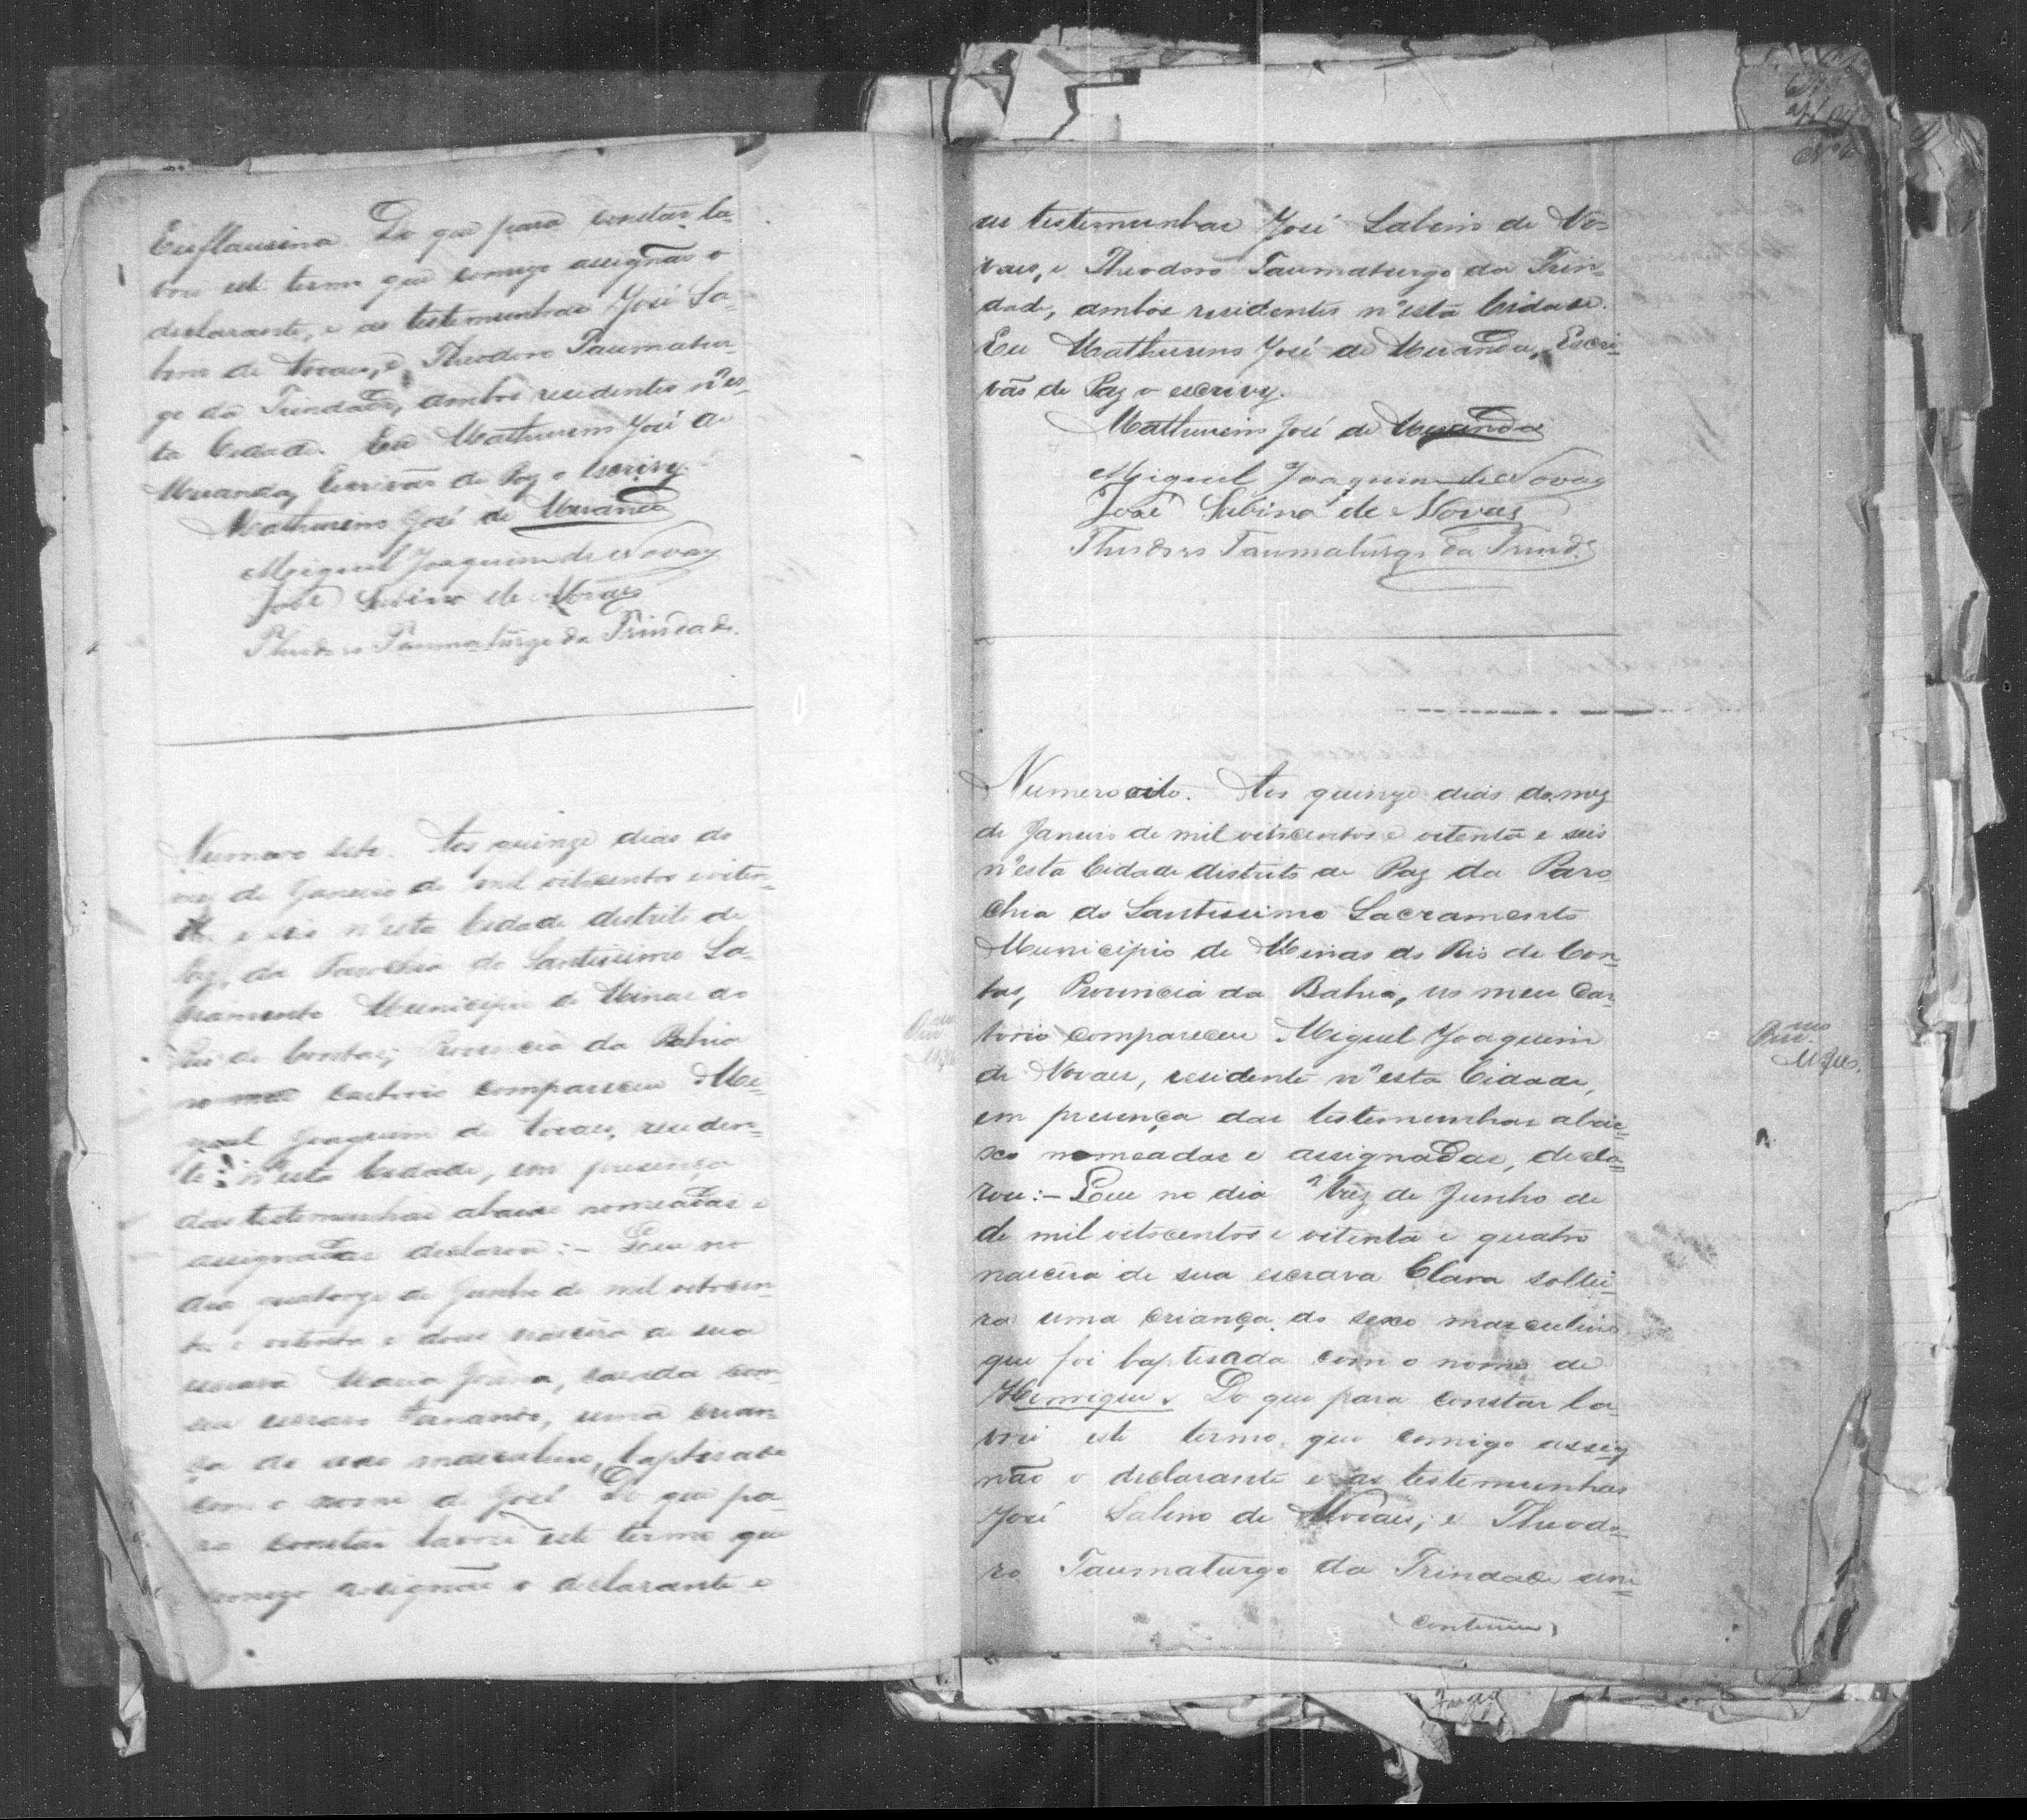 Euflausina. Do que para constar la-
vrei este termo que comigo assignão o
declarante, e as testemunhas José Sa-
bino de Novaes, e Theodoro Taumatur-
go da Trindade, ambos residentes n'es-
ta Cidade. Eu Mathurino José de
Miranda, Escrivão de Paz o escrivy.
Mathurino José de Miranda
Miguel Joaquim de Novaes
José Sabino de Novaes
Theodoro Taumaturgo da Trindade.
Numero sete. Aos quinze dias do
mez de Janeiro de mil oitocentos e oiten-
ta e seis n'esta Cidade distrito de
Paz, da Parochia do Santissimo Sa-
cramento Municipio de Minas do
Rio de Contas, Provincia da Bahia
no meu cartorio compareceu Mi-
guel Joaquim de Novaes, residen-
te n'esta Cidade, em presença
das testemunhas abaixo nomeadas e
assignadas declarou:- Que no
dia quatorze de Junho de mil oitocen-
tos e oitenta e dous nascêra de sua
escrava Maria Joana, casada com
seu escravo Fernando, uma crian-
ça do sexo masculino, baptisada
com o nome de José Do que pa-
ra constar lavrei este termo que
comigo assignão o declarante e
as testemunhas José Sabino de No-
vaes, e Theodoro Taumaturgo da Trin-
dade, ambos residentes n'esta Cidade.
Eu Mathurino José de Miranda, Escri-
vão de Paz o escrivy.
Mathurino José de Miranda
Miguel Joaquim de Novaes
José Sabino de Novaes
Theodoro Taumaturgo da Trind.e
Numero oito. Aos quinze dias do mez
de Janeiro de mil oitocentos e oitenta e seis
n'esta Cidade distrito de Paz da Paro
chia do Santissimo Sacramento
Municipio de Minas do Rio de Con-
tas, Provincia da Bahia, no meu Car
torio compareceu Miguel Joaquim
de Novaes, residente n'esta Cidade,
em presença das testemunhas abai-
xo nomeadas e assignadas, decla-
rou:- Que no dia trez de Junho de
de mil oitocentos e oitenta e quatro
nascêra de sua escrava Clara soltei-
ra uma criança do sexo masculino
que foi baptisada com o nome de
Henrique. Do que para constar la-
vrei este termo, que comigo assig
não o declarante e as testemunhas
José Sabino de Novaes, e Theodo-
ro Taumaturgo da Trindade am-
(continua)